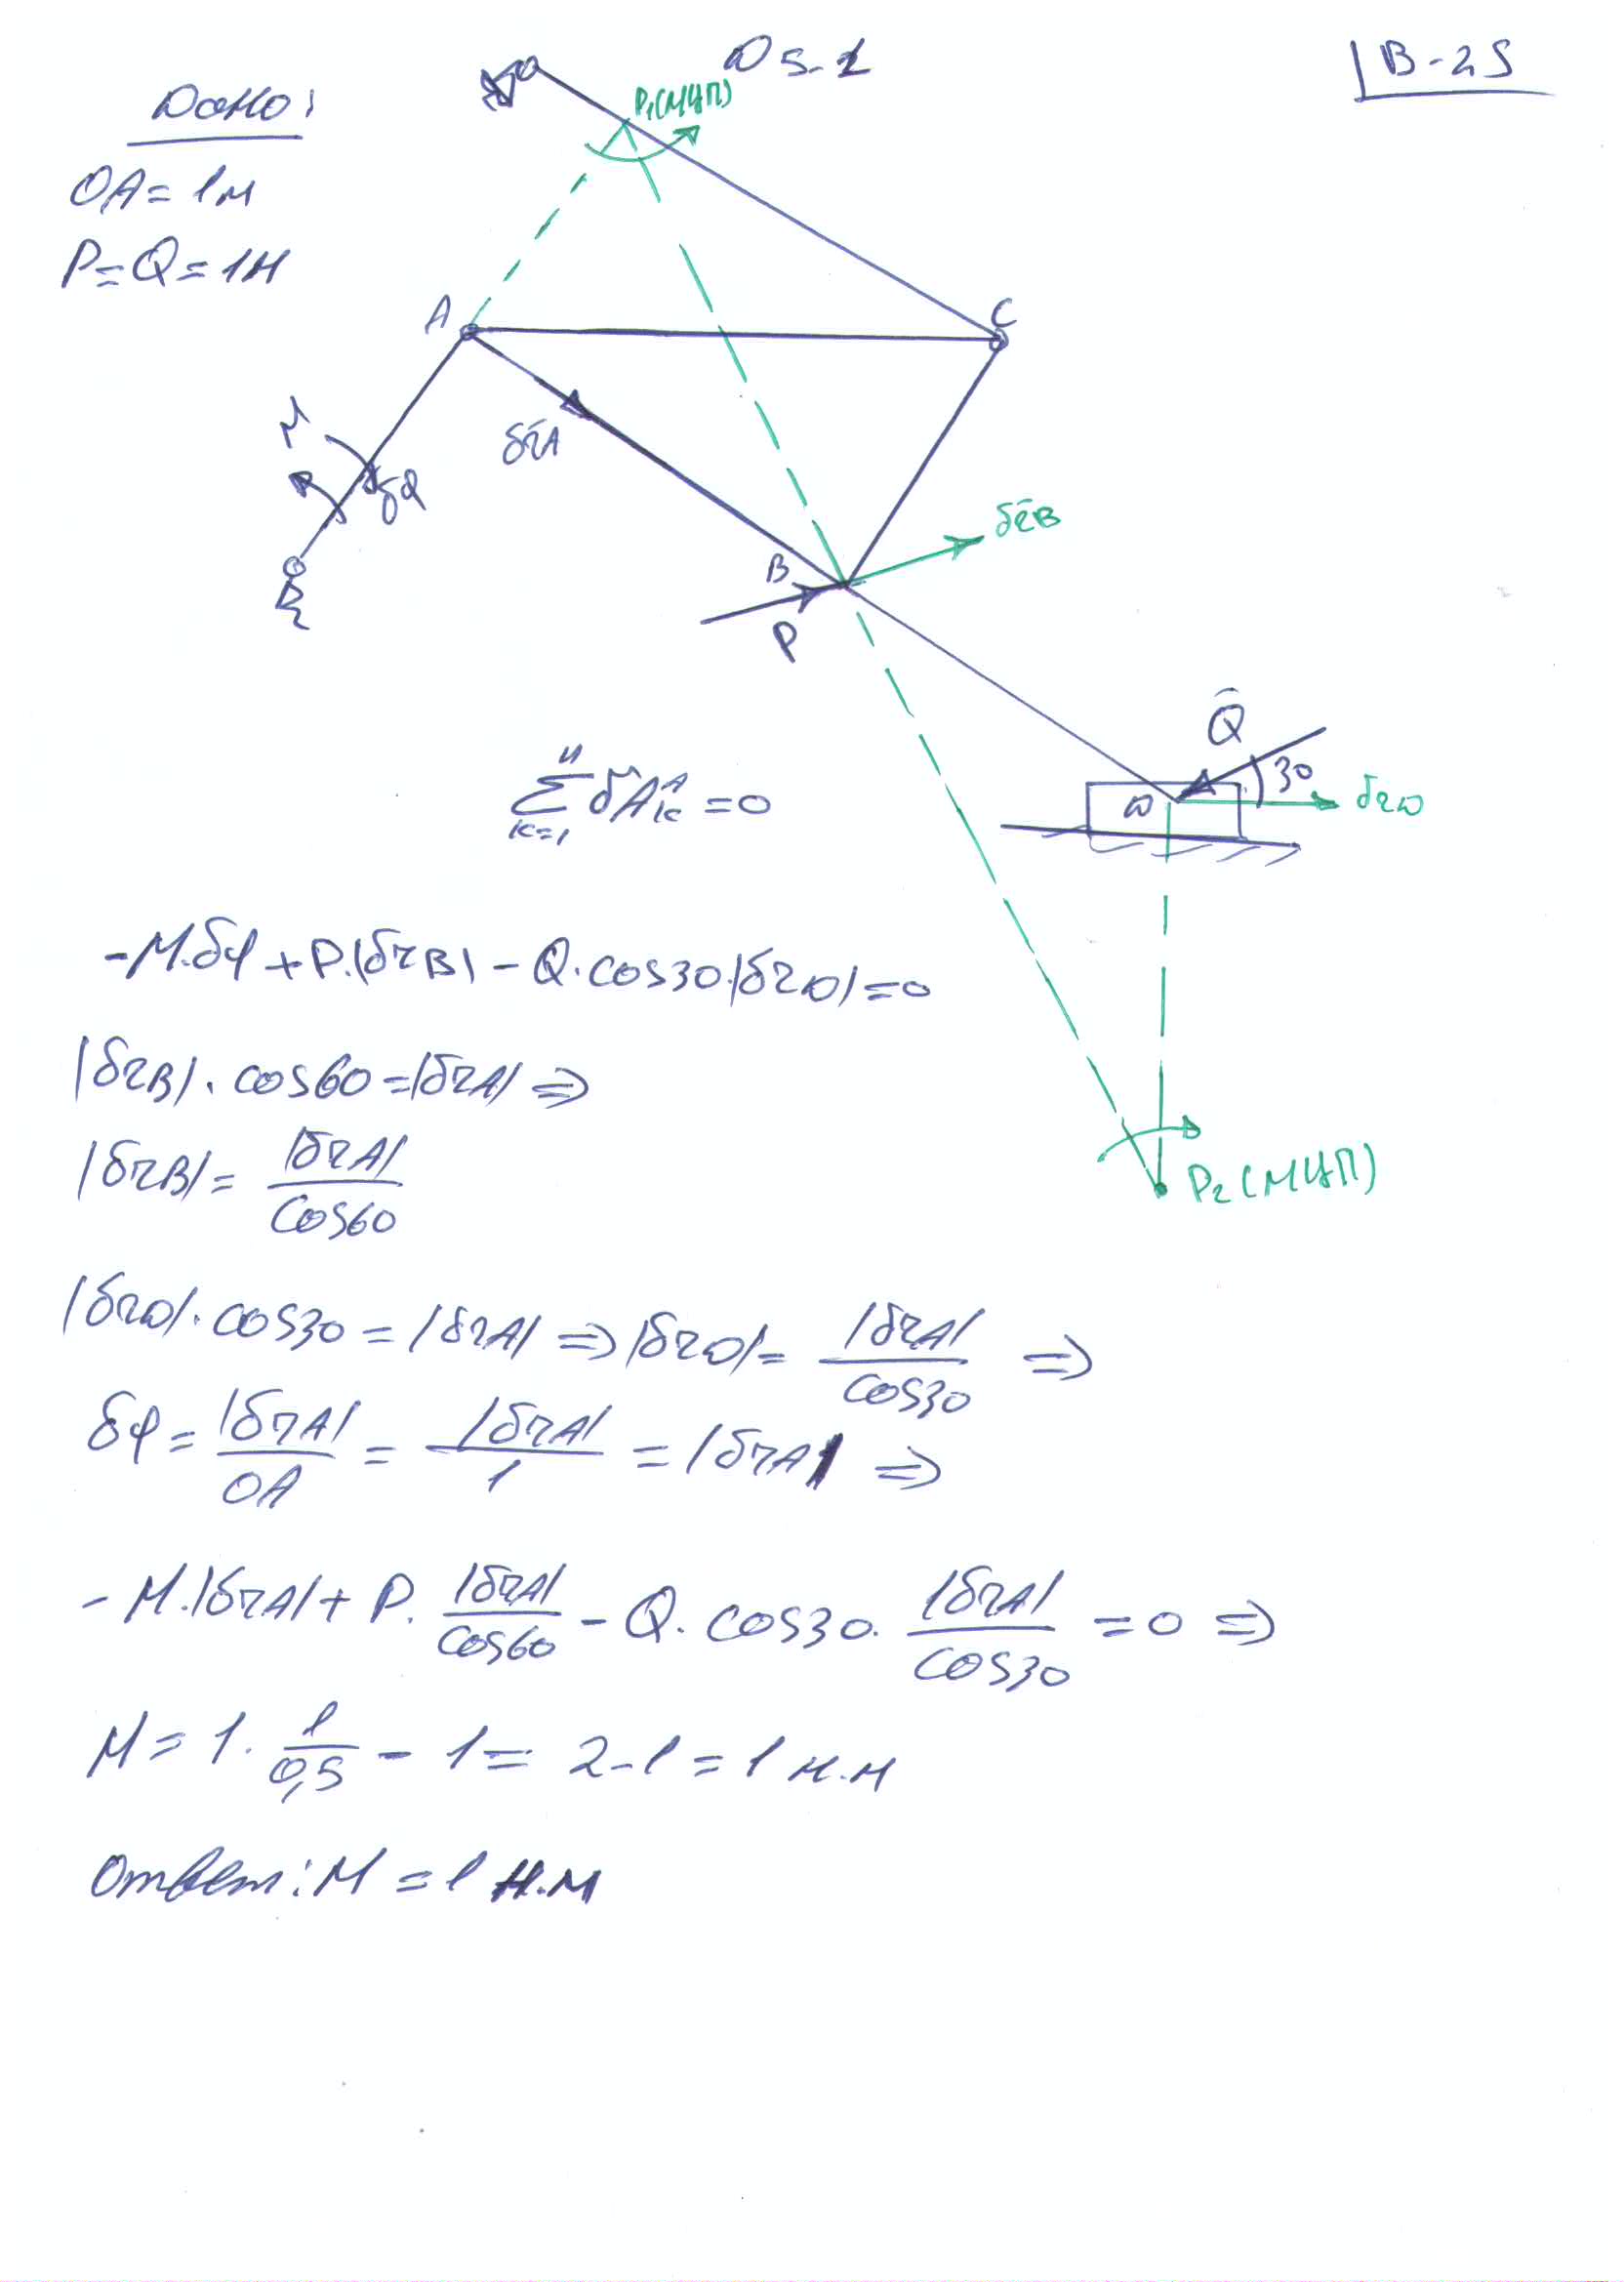 D 5-1
B-25
Дано:
OA = 1м
P = Q = 1Н
P₁(МЦП)
A
C
δr̄A
M
δφ
δr̄B
B
P
Q̄
30
D
δrD
∑ₖ₌₁ⁿ δAₖᴬ = 0
-M·δφ + P·|δrB| - Q·cos30·|δrD| = 0
|δrB|·cos60 = |δrA| ⇒
|δrB| = |δrA| / cos60
P₂(МЦП)
|δrD|·cos30 = |δrA| ⇒ |δrD| = |δrA| / cos30 ⇒
δφ = |δrA| / OA = |δrA| / 1 = |δrA| ⇒
-M·|δrA| + P·|δrA| / cos60 - Q·cos30·|δrA| / cos30 = 0 ⇒
M = 1·1 / 0,5 - 1 = 2-1 = 1 н.м
Ответ: M = 1 Н.м